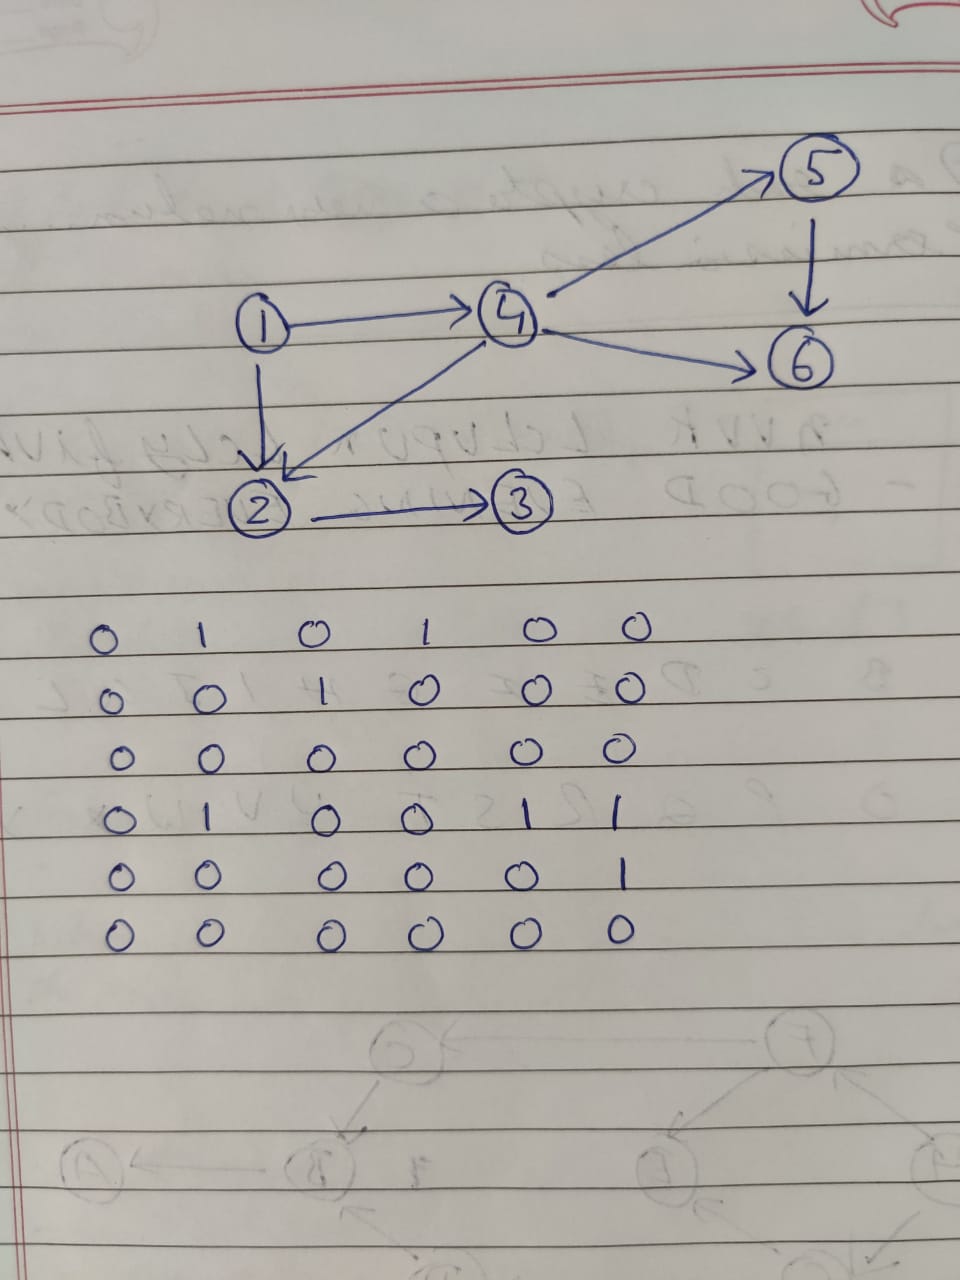 5
1 4
6
2 3
0 1 0 1 0 0
0 0 1 0 0 0
0 0 0 0 0 0
0 1 0 0 1 1
0 0 0 0 0 1
0 0 0 0 0 0